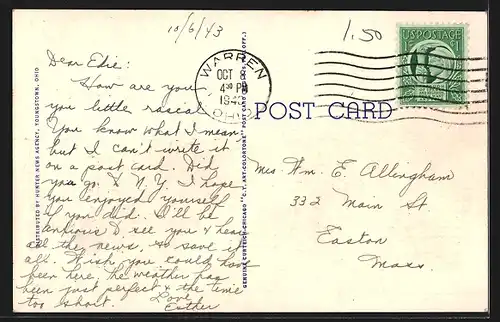 10/6/43
1.50
Dear Edie:
How are your
you little rascal
You know what I mean
but I can't write it
on a post card. Did
you go to N.Y. I hope
you enjoyed yourself
if you did. I'll be
anxious to see you & hear
all the news, so save it
all. Wish you could have
been here, the weather has
been just perfect & the time
too short.
Love
Esther
WARREN
OCT 8
4 30 PM
1943
OHIO
U.S. POSTAGE
1¢
POST CARD
Mrs. Wm. E. Allingham
332 Main St
Easton
Mass.
DISTRIBUTED BY HUNTER NEWS AGENCY, YOUNGSTOWN, OHIO
GENUINE CURTEICH-CHICAGO "C.T. ART-COLORTONE" POST CARD (REG. U.S. PAT. OFF.)